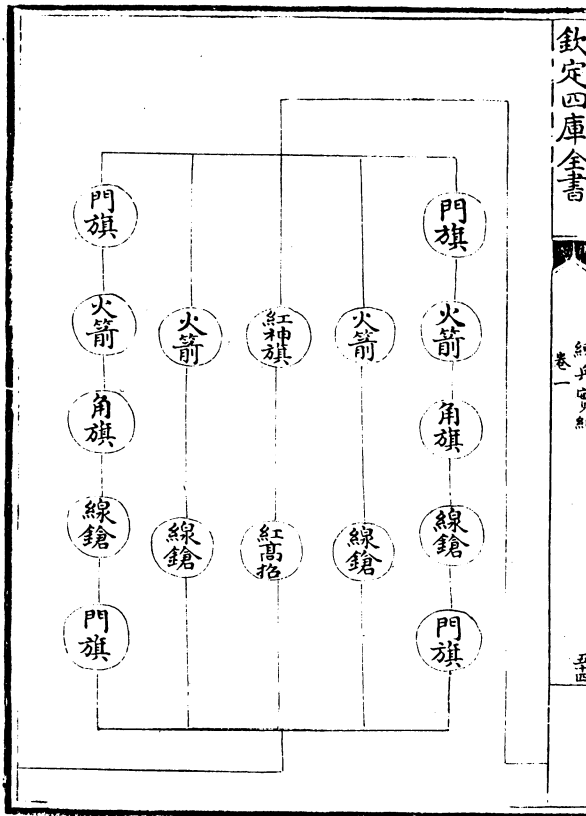 欽定四庫全書
練兵實紀
卷一
五十四
門旗
火箭
角旗
線鎗
門旗
火箭
線鎗
紅神旗
紅高招
火箭
線鎗
門旗
火箭
角旗
線鎗
門旗